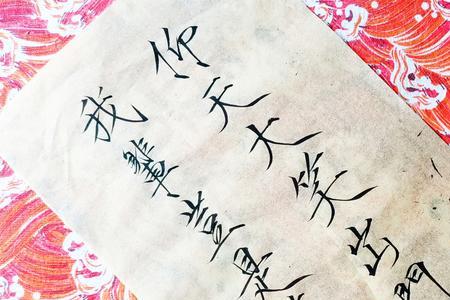 仰天大笑出門
我輩豈是